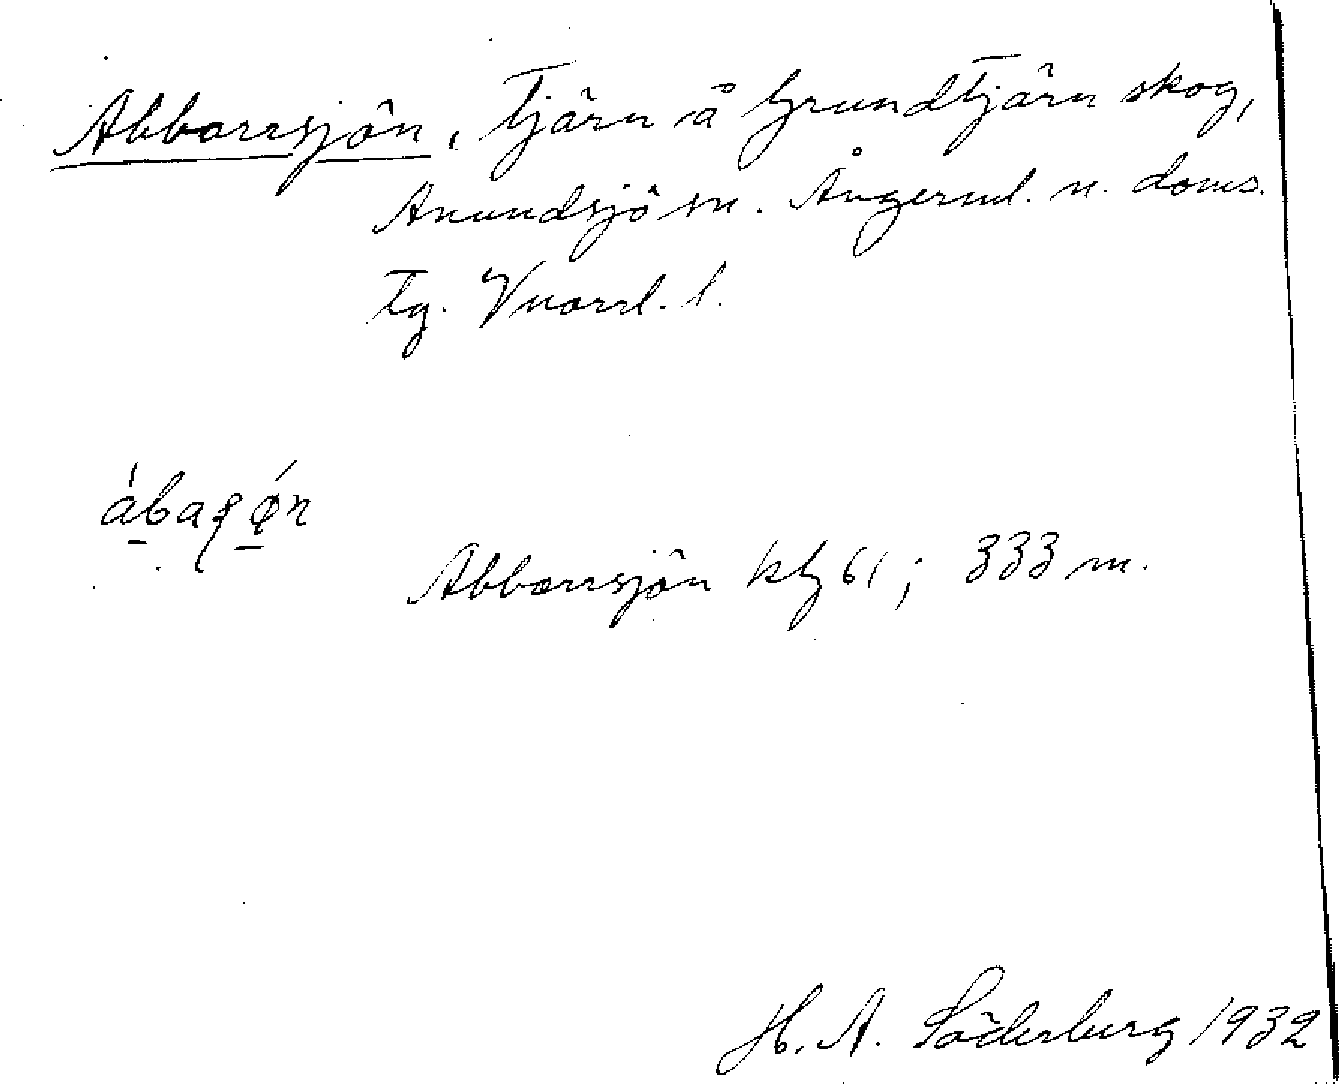 Abborrsjön, Tjärn å Grundtjärn skog,
Anundsjö sn. Ångerml. n. doms.
Tg. Vnorrl. l.
ábaʂǿn
Abborrsjön kbl 61; 333 m.
H. A. Söderberg 1932